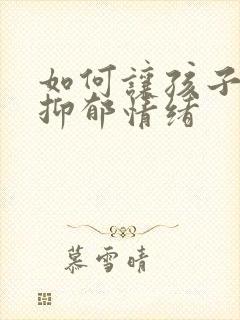 如何讓孩子
抑郁情绪
慕雪晴